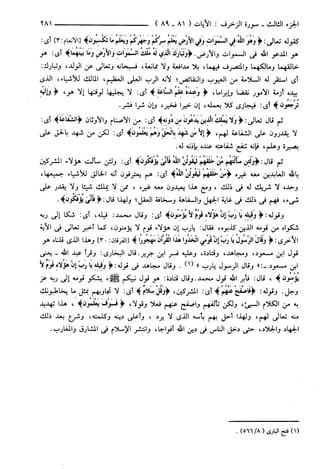 الجزء الثالث - سورة الزخرف: الآيات (٨١ - ٨٩) ٢٨١
كقوله تعالى: ﴿وهو الله في السموات وفي الأرض يعلم سركم وجهركم ويعلم ما تكسبون﴾ [الأنعام: ٣] أي:
هو المدعو الله في السموات والأرض. ﴿وتبارك الذي له ملك السموات والأرض وما بينهما﴾ أي: هو
خالقهما ومالكهما والمتصرف فيهما، بلا مدافعة ولا ممانعة، فسبحانه وتعالى عن الولد، وتبارك:
أي استقر له السلامة من العيوب والنقائص؛ لأنه الرب العلي العظيم، المالك للأشياء، الذي
بيده أزمة الأمور نقضا وإبراما، ﴿وعنده علم الساعة﴾ أي: لا يجليها لوقتها إلا هو، ﴿وإليه
ترجعون﴾ أي: فيجازي كلا بعمله، إن خيرا فخير، وإن شرا فشر.
ثم قال تعالى: ﴿ولا يملك الذين يدعون من دونه﴾ أي: من الأصنام والأوثان ﴿الشفاعة﴾ أي:
لا يقدرون على الشفاعة لهم، ﴿إلا من شهد بالحق وهم يعلمون﴾ أي: لكن من شهد بالحق على
بصيرة وعلم، فإنه تنفع شفاعته عنده بإذنه له.
ثم قال: ﴿ولئن سألتهم من خلقهم ليقولن الله فأنى يؤفكون﴾ أي: ولئن سألت هؤلاء المشركين
بالله العابدين معه غيره، ﴿من خلقهم ليقولن الله﴾ أي: هم يعترفون أنه الخالق للأشياء جميعها،
وحده لا شريك له في ذلك، ومع هذا يعبدون معه غيره، ممن لا يملك شيئا ولا يقدر على
شيء، فهم في ذلك في غاية الجهل والسفاهة وسخافة العقل؛ ولهذا قال: ﴿فأنى يؤفكون﴾.
وقوله: ﴿وقيله يا رب إن هؤلاء قوم لا يؤمنون﴾ أي: وقال محمد: قيله، أي: شكا إلى ربه
شكواه من قومه الذين كذبوه، فقال: يارب إن هؤلاء قوم لا يؤمنون، كما أخبر تعالى في الآية
الأخرى: ﴿وقال الرسول يا رب إن قومي اتخذوا هذا القرآن مهجورا﴾ [الفرقان: ٣٠] وهذا الذي قلناه هو
قول ابن مسعود، ومجاهد، وقتادة، وعليه فسر ابن جرير. قال البخاري: وقرأ عبد الله - يعني
ابن مسعود -: « وقال الرسول يارب » (١). وقال مجاهد في قوله: ﴿وقيله يا رب إن هؤلاء قوم لا
يؤمنون﴾، قال: فأبر الله قول محمد. وقال قتادة: هو قول نبيكم ﷺ، يشكو قومه إلى ربه عز
وجل. وقوله: ﴿فاصفح عنهم﴾ أي: المشركين، ﴿وقل سلام﴾ أي: لا تجاوبهم بمثل ما يخاطبونك
به من الكلام السيئ، ولكن تألفهم واصفح عنهم فعلا وقولا، ﴿فسوف يعلمون﴾، هذا تهديد
منه تعالى لهم، ولهذا أحل بهم بأسه الذي لا يرد، وأعلى دينه وكلمته، وشرع بعد ذلك
الجهاد والجلاد، حتى دخل الناس في دين الله أفواجا، وانتشر الإسلام في المشارق والمغارب.
(١) فتح الباري (٨/ ٥٦٦).